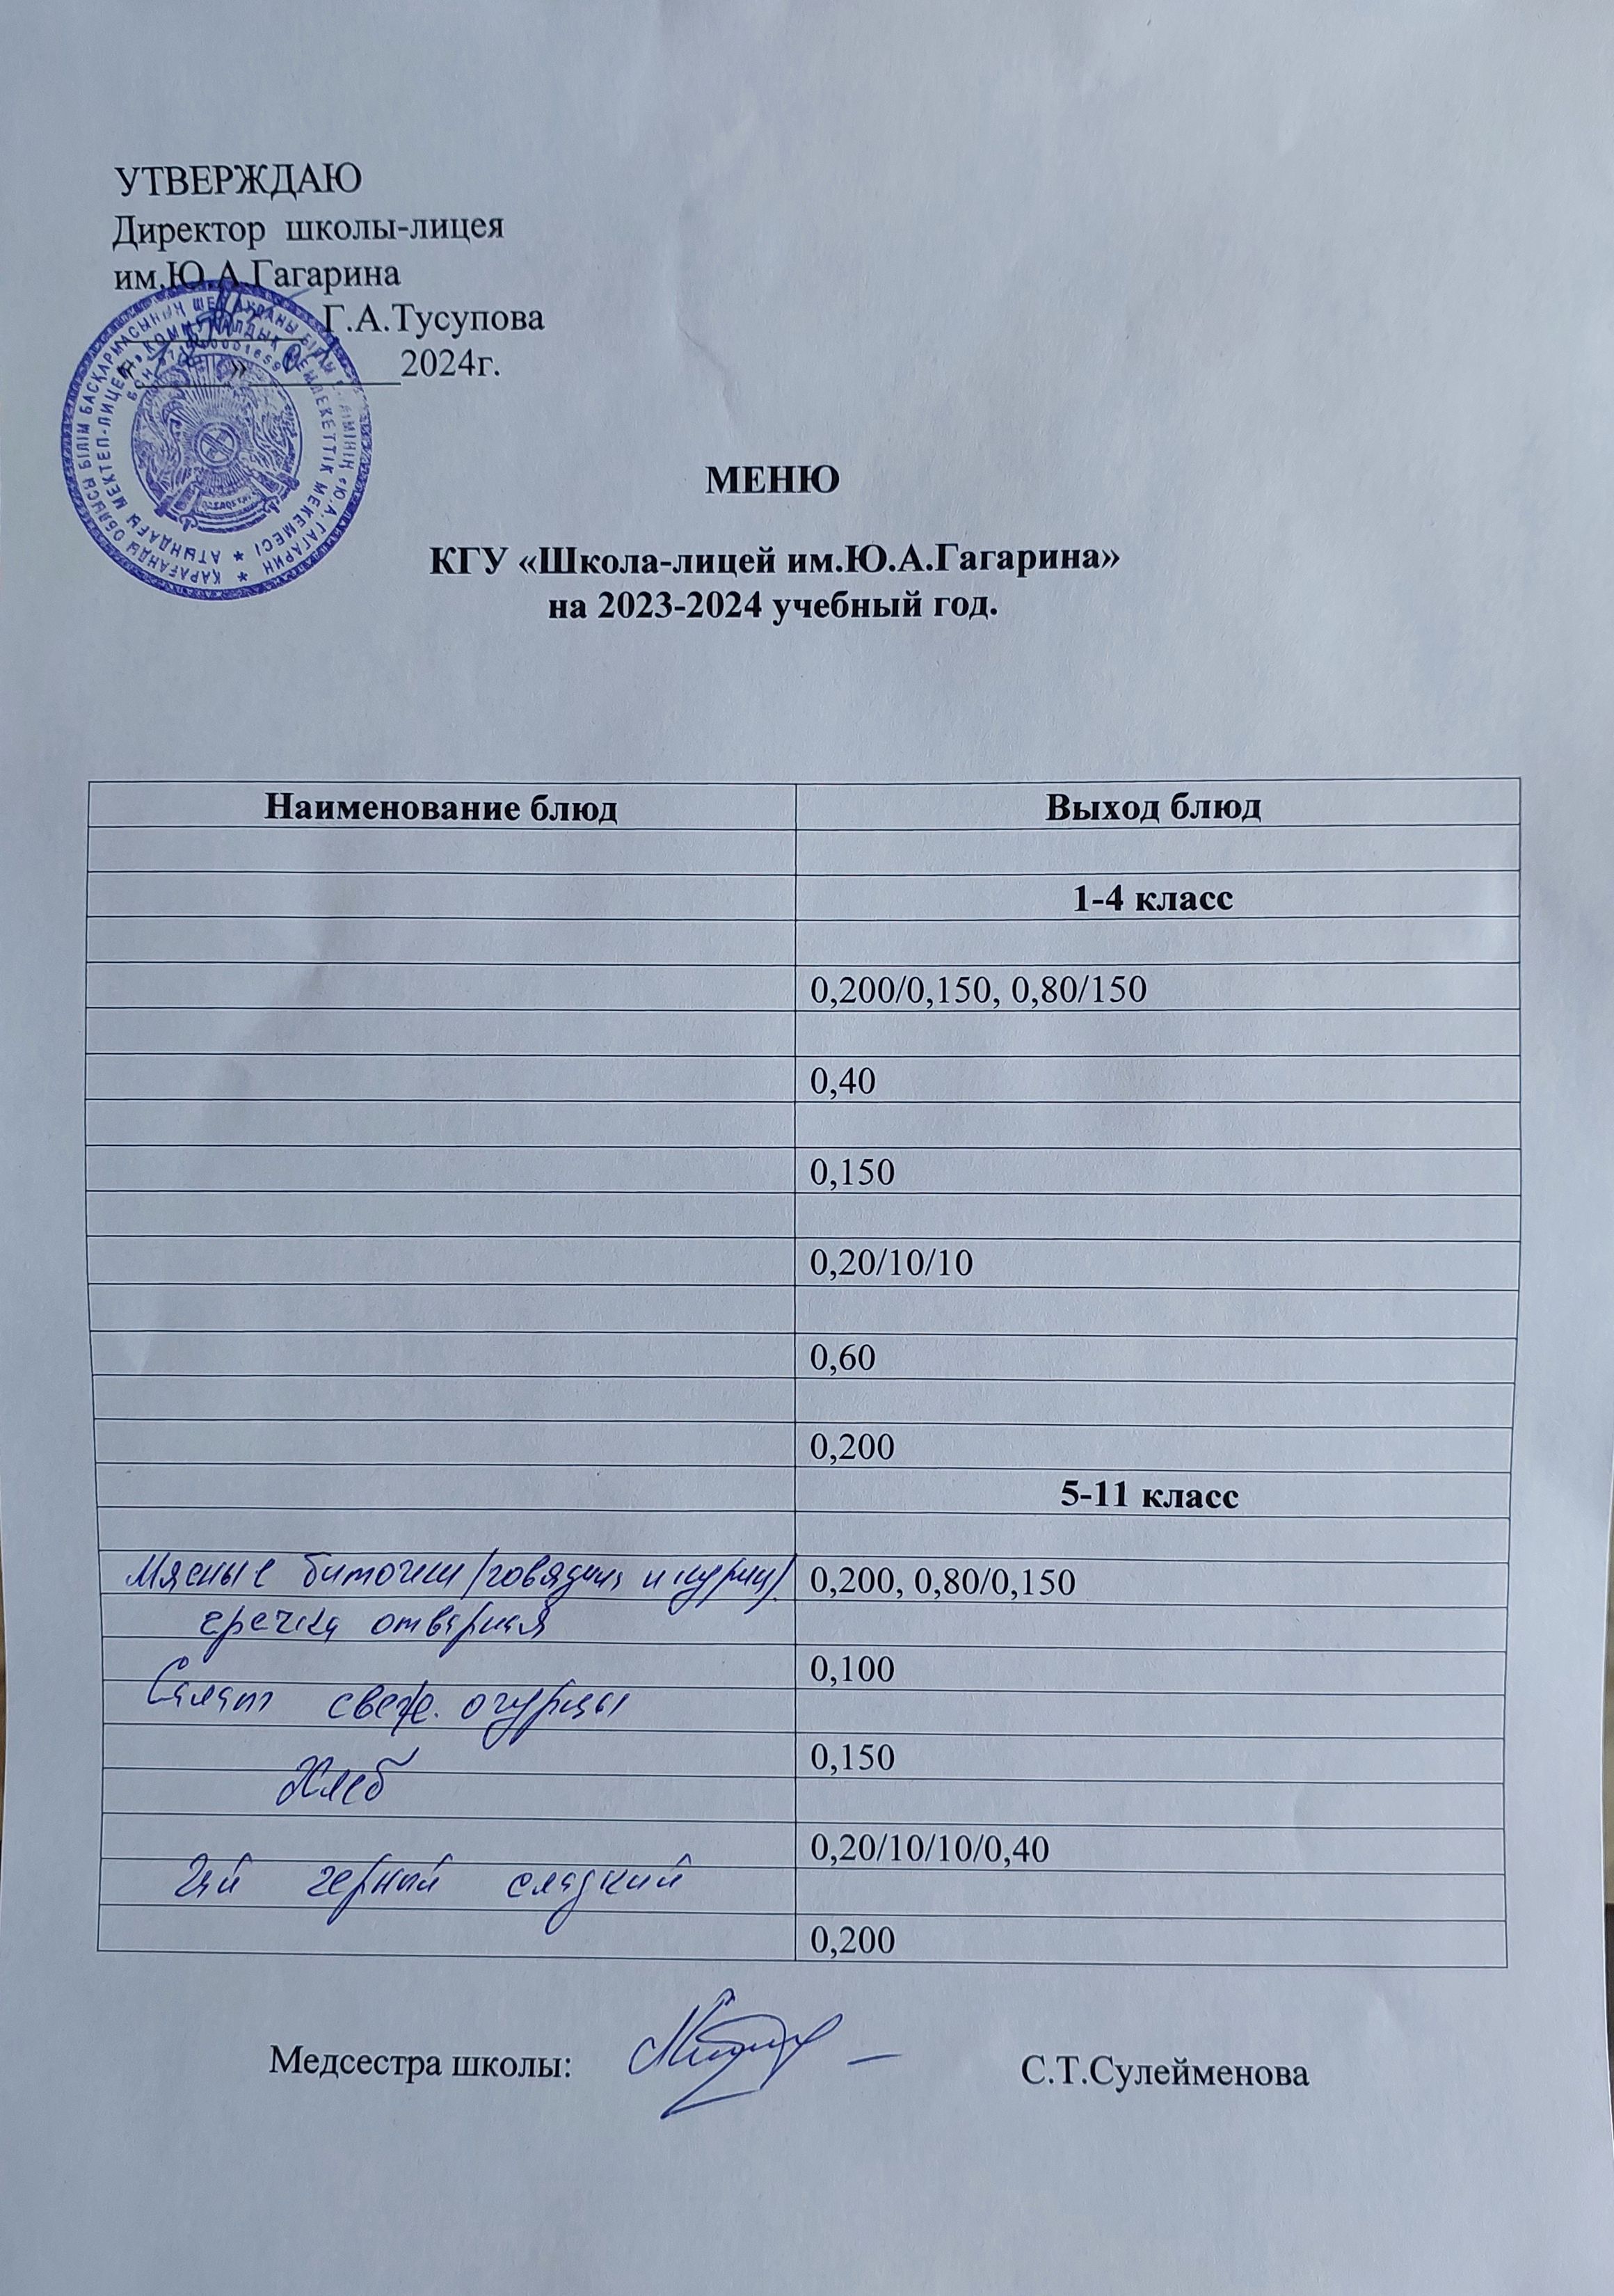 УТВЕРЖДАЮ
Директор школы-лицея
им.Ю.А.Гагарина
Г.А.Тусупова
« » 2024г.
ҚАРАҒАНДЫ ОБЛЫСЫ БІЛІМ БАСҚАРМАСЫНЫҢ ШЕТ АУДАНЫ БІЛІМ БӨЛІМІНІҢ «Ю.А.ГАГАРИН
АТЫНДАҒЫ МЕКТЕП-ЛИЦЕЙІ» КОММУНАЛДЫҚ МЕМЛЕКЕТТІК МЕКЕМЕСІ
МЕНЮ
КГУ «Школа-лицей им.Ю.А.Гагарина»
на 2023-2024 учебный год.
Наименование блюд Выход блюд
1-4 класс
0,200/0,150, 0,80/150
0,40
0,150
0,20/10/10
0,60
0,200
5-11 класс
Мясные биточки /говядина и курица/ 0,200, 0,80/0,150
гречка отварная
0,100
Салат свеж. огурцы
0,150
Хлеб
0,20/10/10/0,40
Чай черный сладкий
0,200
Медсестра школы: С.Т.Сулейменова